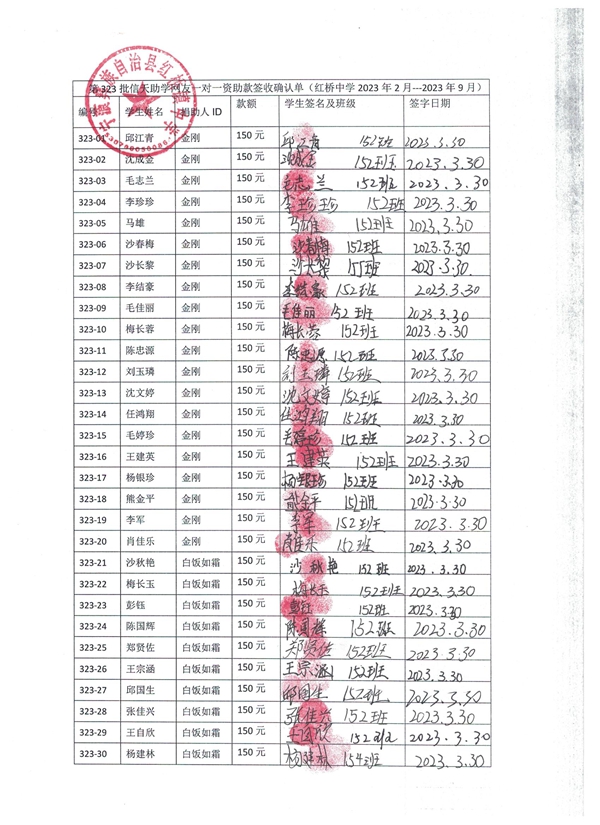 第323批信天助学网友一对一资助款签收确认单（红桥中学2023年2月---2023年9月）
编号 学生姓名 捐助人ID 款额 学生签名及班级 签字日期
323-01 邱江青 金刚 150元 邱江青 152班 2023.3.30
323-02 沈成金 金刚 150元 沈成金 152班 2023.3.30
323-03 毛志兰 金刚 150元 毛志兰 152班 2023.3.30
323-04 李珍珍 金刚 150元 李珍珍 152班 2023.3.30
323-05 马雄 金刚 150元 马雄 152班 2023.3.30
323-06 沙春梅 金刚 150元 沙春梅 152班 2023.3.30
323-07 沙长黎 金刚 150元 沙长黎 152班 2023.3.30
323-08 李结豪 金刚 150元 李结豪 152班 2023.3.30
323-09 毛佳丽 金刚 150元 毛佳丽 152班 2023.3.30
323-10 梅长蓉 金刚 150元 梅长蓉 152班 2023.3.30
323-11 陈忠源 金刚 150元 陈忠源 152班 2023.3.30
323-12 刘玉璘 金刚 150元 刘玉璘 152班 2023.3.30
323-13 沈文婷 金刚 150元 沈文婷 152班 2023.3.30
323-14 任鸿翔 金刚 150元 任鸿翔 152班 2023.3.30
323-15 毛婷珍 金刚 150元 毛婷珍 152班 2023.3.30
323-16 王建英 金刚 150元 王建英 152班 2023.3.30
323-17 杨银珍 金刚 150元 杨银珍 152班 2023.3.30
323-18 熊金平 金刚 150元 熊金平 152班 2023.3.30
323-19 李军 金刚 150元 李军 152班 2023.3.30
323-20 肖佳乐 金刚 150元 肖佳乐 152班 2023.3.30
323-21 沙秋艳 白饭如霜 150元 沙秋艳 152班 2023.3.30
323-22 梅长玉 白饭如霜 150元 梅长玉 152班 2023.3.30
323-23 彭钰 白饭如霜 150元 彭钰 152班 2023.3.30
323-24 陈国辉 白饭如霜 150元 陈国辉 152班 2023.3.30
323-25 郑贤佐 白饭如霜 150元 郑贤佐 152班 2023.3.30
323-26 王宗涵 白饭如霜 150元 王宗涵 152班 2023.3.30
323-27 邱国生 白饭如霜 150元 邱国生 152班 2023.3.30
323-28 张佳兴 白饭如霜 150元 张佳兴 152班 2023.3.30
323-29 王自欣 白饭如霜 150元 王自欣 152班 2023.3.30
323-30 杨建林 白饭如霜 150元 杨建林 154班 2023.3.30